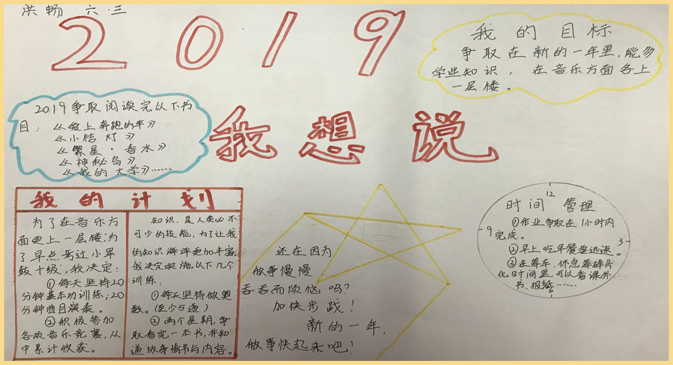 洪畅 六·三
2019
我的目标
争取在新的一年里,能多
学业知识,在音乐方面各上
一层楼。
2019争取阅读完以下书
目:
《小桔灯》
《繁星·春水》
《神秘岛》
《我的大学》……
我想说
我的计划
为了在音乐方
面更上一层楼,为
了早点考过小单
鼓十级,我决定:
①每天坚持20
分钟基本功训练,20
分钟曲目演奏。
②积极参加
各项音乐竞赛,从
中累计收获。
知识,是人类必不
可少的技能,为了让我
的知识更加丰富,
我决定以下几个
训练。
①每天坚持做奥
数。(至少5道)
②两个星期,争
取看完一本书,并知
道故事情节与内容。
还在因为
做事慢慢
吞吞而烦恼吗?
加快步践!
新的一年,
做事快起来吧!
12
时间管理
①作业争取在1小时内
完成。
9
3
②早上吃早餐要迅速。
③在等车、休息等碎片
化时间里,可以看课外
书、报纸……